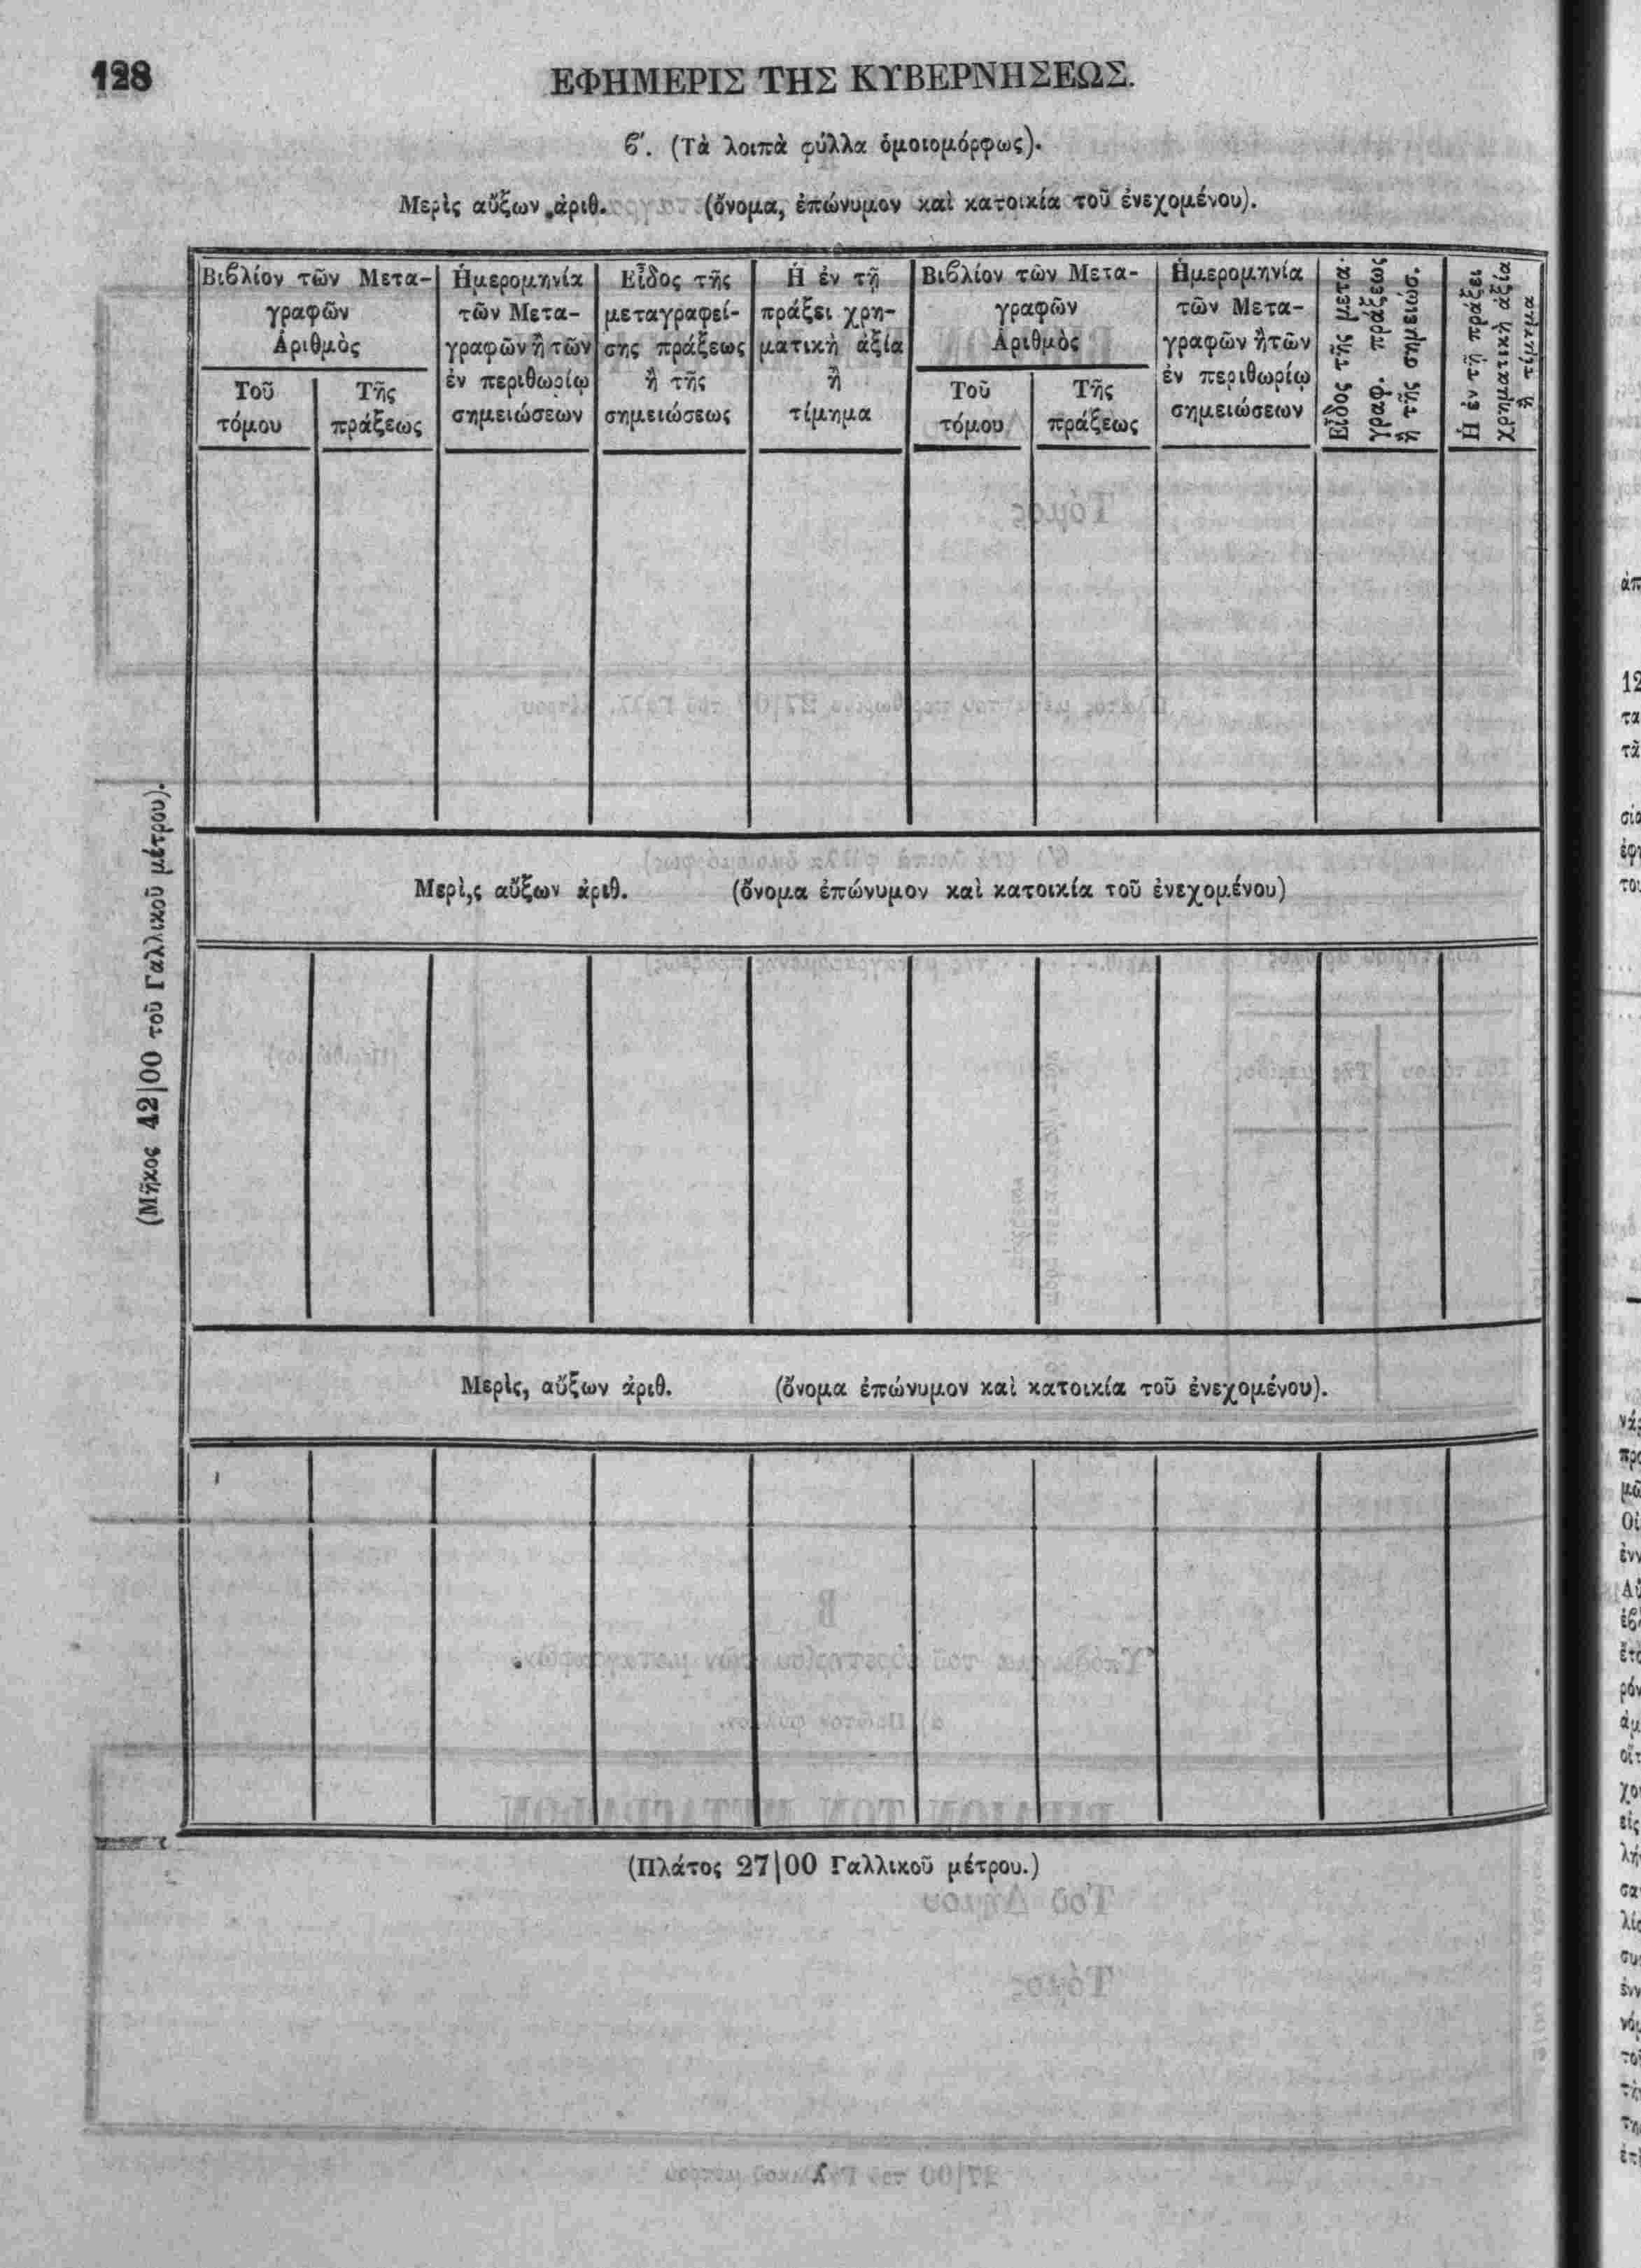 128
ΕΦΗΜΕΡΙΣ ΤΗΣ ΚΥΒΕΡΝΗΣΕΩΣ.
ϐ′. (Τὰ λοιπὰ φύλλα ὁμοιομόρφως).
Μερὶς αὔξων ἀριθ. (ὄνομα, ἐπώνυμον καὶ κατοικία τοῦ ἐνεχομένου).
Βιϐλίον τῶν Μετα-
γραφῶν
Ἀριθμὸς
Τοῦ
τόμου
Τῆς
πράξεως
Ἡμερομηνία
τῶν Μετα-
γραφῶν ἢ τῶν
ἐν περιθωρίῳ
σημειώσεων
Εἶδος τῆς
μεταγραφεί-
σης πράξεως
ἢ τῆς
σημειώσεως
Ἡ ἐν τῇ
πράξει χρη-
ματικὴ ἀξία
ἢ
τίμημα
Βιϐλίον τῶν Μετα-
γραφῶν
Ἀριθμὸς
Τοῦ
τόμου
Τῆς
πράξεως
Ἡμερομηνία
τῶν Μετα-
γραφῶν ἢ τῶν
ἐν περιθωρίῳ
σημειώσεων
Εἶδος τῆς μετα-
γραφ. πράξεως
ἢ τῆς σημειώσ.
Ἡ ἐν τῇ πράξει
χρηματικὴ ἀξία
ἢ τίμημα
(Μῆκος 42|00 τοῦ Γαλλικοῦ μέτρου).
Μερὶ,ς αὔξων ἀριθ. (ὄνομα ἐπώνυμον καὶ κατοικία τοῦ ἐνεχομένου)
Μερὶς, αὔξων ἀριθ. (ὄνομα ἐπώνυμον καὶ κατοικία τοῦ ἐνεχομένου).
(Πλάτος 27|00 Γαλλικοῦ μέτρου.)